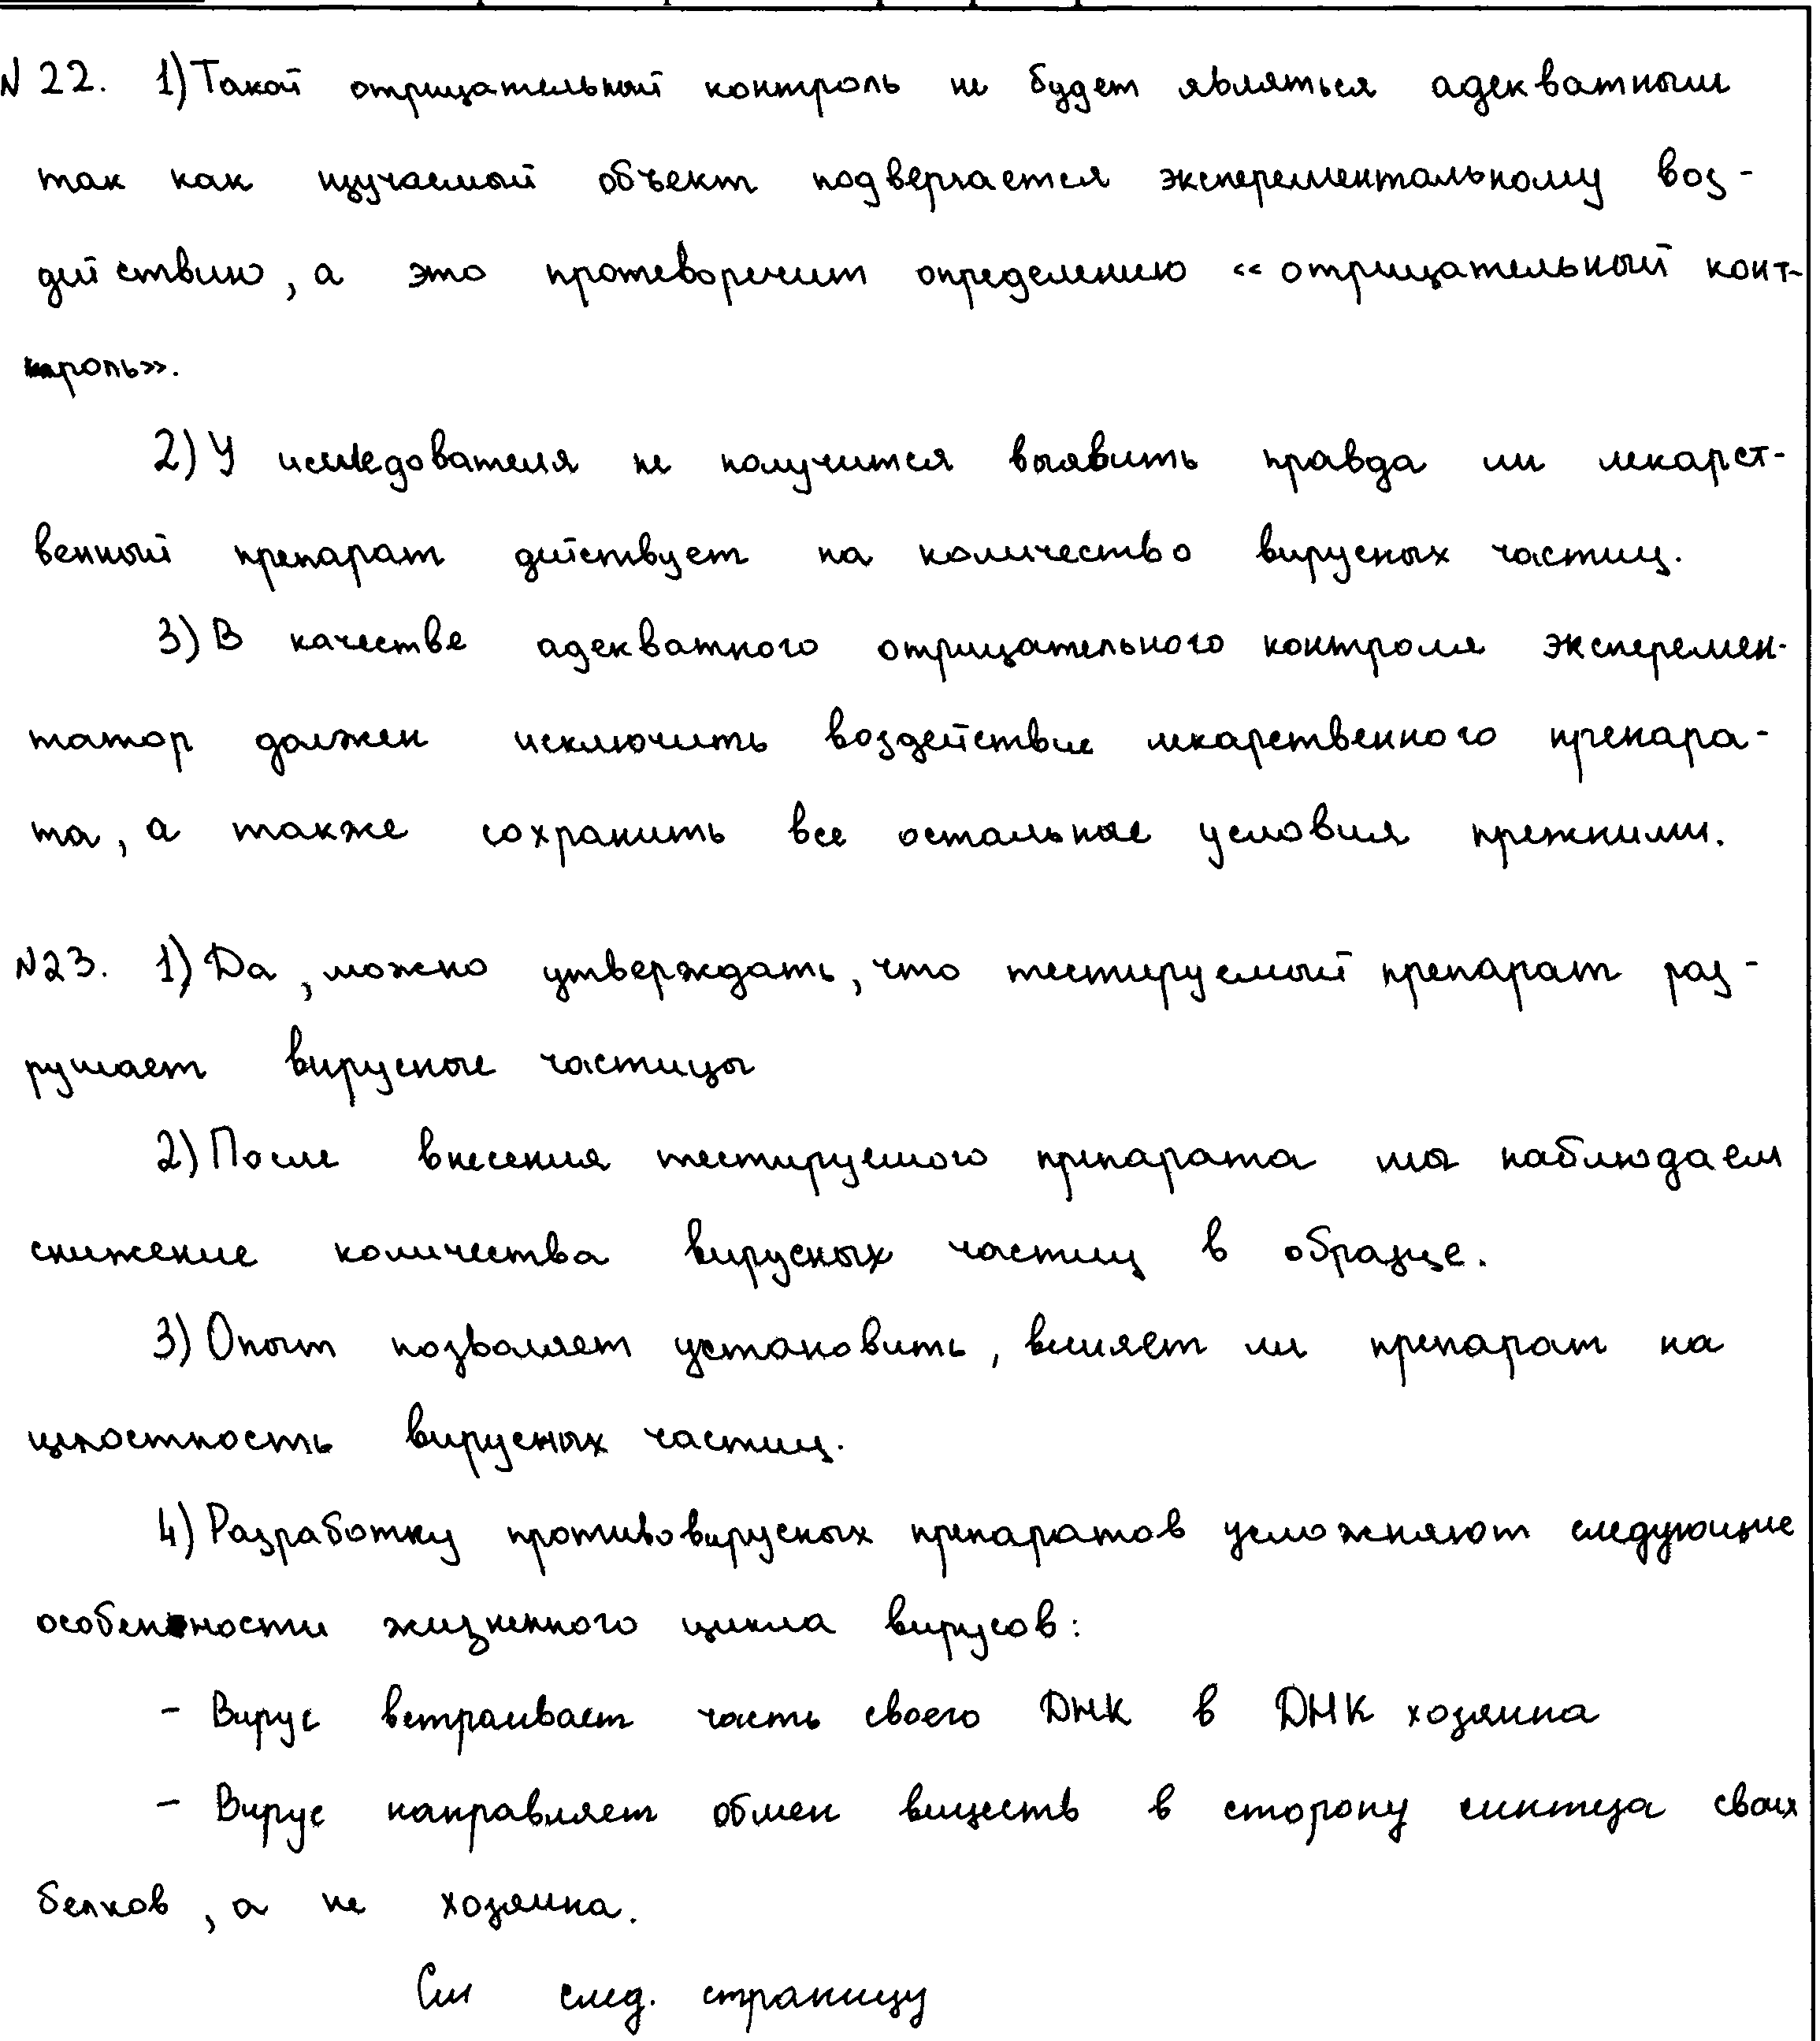 N 22. 1) Такой отрицательный контроль не будет являться адекватным
так как изучаемый объект подвергается эксперементальному воз-
действию, а это протеворечит определению «отрицательный конт-
роль».
2) У исследователя не получится выявить правда ли лекарст-
венный препарат действует на количество вирусных частиц.
3) В качестве адекватного отрицательного контроля эксперемен-
татор должен исключить воздействие лекарственного препара-
та, а также сохранить все остальные условия прежними.
N23. 1) Да, можно утверждать, что тестируемый препарат раз-
рушает вирусные частицы
2) После внесения тестируемого препарата мы наблюдаем
снижение количества вирусных частиц в образце.
3) Опыт позволяет установить, влияет ли препарат на
целостность вирусных частиц.
4) Разработку противовирусных препаратов усложняют следующие
особенности жизненного цикла вирусов:
- Вирус встраивает часть своего ДНК в ДНК хозяина
- Вирус направляет обмен веществ в сторону синтеза своих
белков, а не хозяина.
См след. страницу